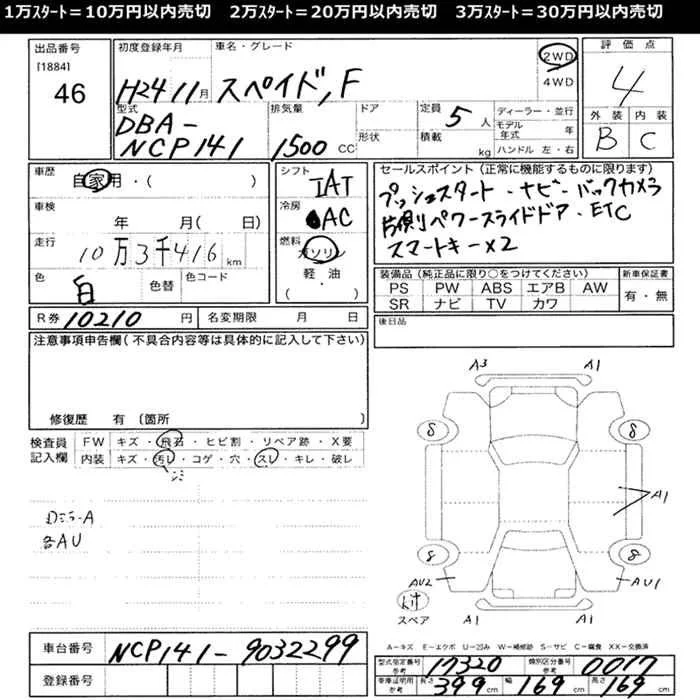 1万スタート＝10万円以内売切　2万スタート＝20万円以内売切　3万スタート＝30万円以内売切
出品番号
[1884]
46
初度登録年月
H24 11月
車名・グレード
スペイド, F
2WD
4WD
評価点
4
外装 内装
B C
型式
DBA-
NCP141
排気量
1500 CC
ドア
形状
定員 5 人
積載 kg
ディーラー・並行
モデル年式 年
ハンドル 左・右
車歴
自家用・( )
車検
年 月( 日)
走行
10万3千416 km
色
白
色替
色コード
シフト
IAT
冷房
AC
燃料
ガソリン
軽・油
( )
セールスポイント（正常に機能するものに限ります）
プッシュスタート・ナビ・バックカメラ
片側パワースライドドア・ETC
スマートキーx2
装備品（純正品に限り○をつけてください）
PS PW ABS エアB AW
SR ナビ TV カワ
新車保証書
有・無
R券 10210 円
名変期限 月 日
後日品
注意事項申告欄(不具合内容等は具体的に記入して下さい)
修復歴 有 〔箇所 〕
検査員
記入欄
FW キズ・飛石・ヒビ割・リペア跡・X要
内装 キズ・汚レ・コゲ・穴・スレ・キレ・破レ
ミラーA
各AU
A3 A1
8 8
A1
8 8
AU2 AU1
スペア
A1 A1
車台番号 NCP141-9032299
登録番号
A＝キズ E＝エクボ U＝凹み W＝補修跡 S＝サビ C＝腐食 XX＝交換済
型式指定番号 参考 17320
類別区分番号 参考 0017
車庫証明用 参考 長さ 399 cm 幅 169 cm 高さ 169 cm